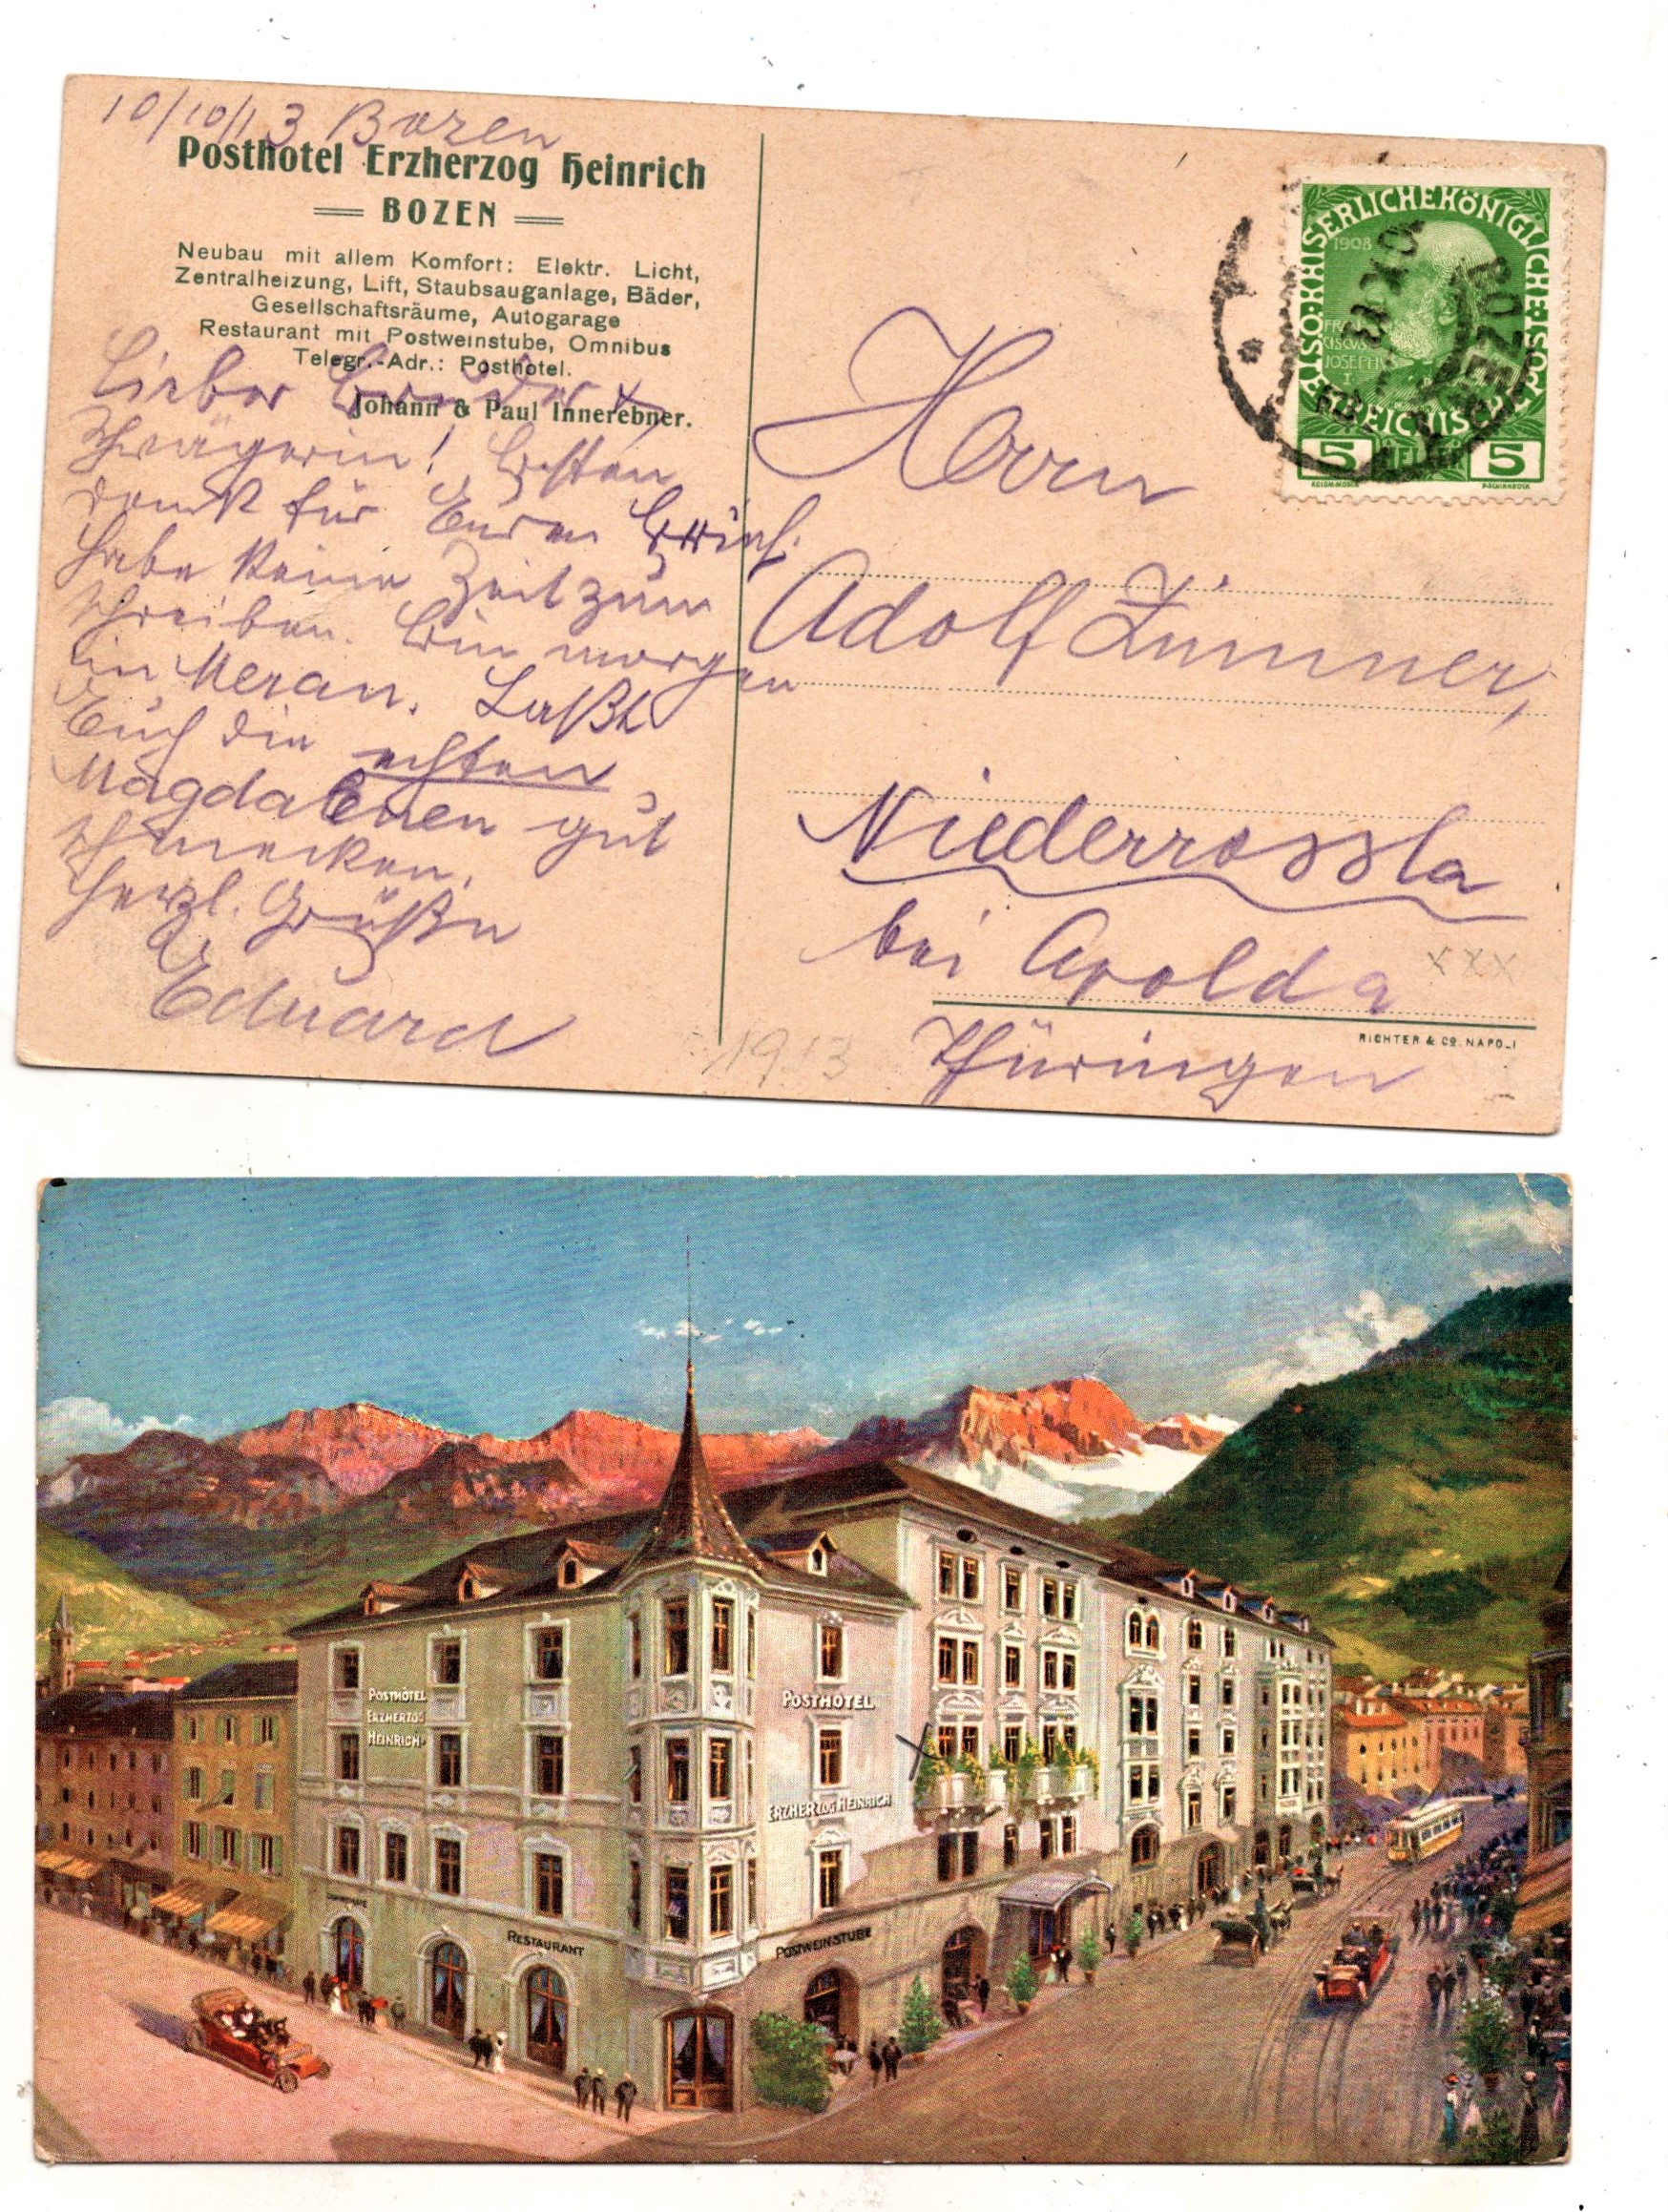 10/10/13 Bozen
Posthotel Erzherzog Heinrich
BOZEN
Neubau mit allem Komfort: Elektr. Licht,
Zentralheizung, Lift, Staubsauganlage, Bäder,
Gesellschaftsräume, Autogarage
Restaurant mit Postweinstube, Omnibus
Telegr.-Adr.: Posthotel.
Johann & Paul Innerebner.
Lieber Bruder &
Schwägerin! Besten
Dank für Euren Brief.
Habe keine Zeit zum
schreiben. Bin morgen
in Meran. Laßt
Euch die echten
Magdalenen gut
schmecken.
Herzl. Grüße
Eduard
1913
KAISERLICHEKÖNIGLICHE
ÖSTERREICHISCHE
1908
FRAN
CISCUS
JOSEPH
I
5 HELLER 5
BOZEN
10.X.13
Herrn
Adolf Zimmer,
Niederrossla
bei Apolda
XXX
Thüringen
RICHTER & Co. NAPOLI
POSTHOTEL
ERZHERZOG
HEINRICH
POSTHOTEL
ERZHERZOG HEINRICH
RESTAURANT
POSTWEINSTUBE